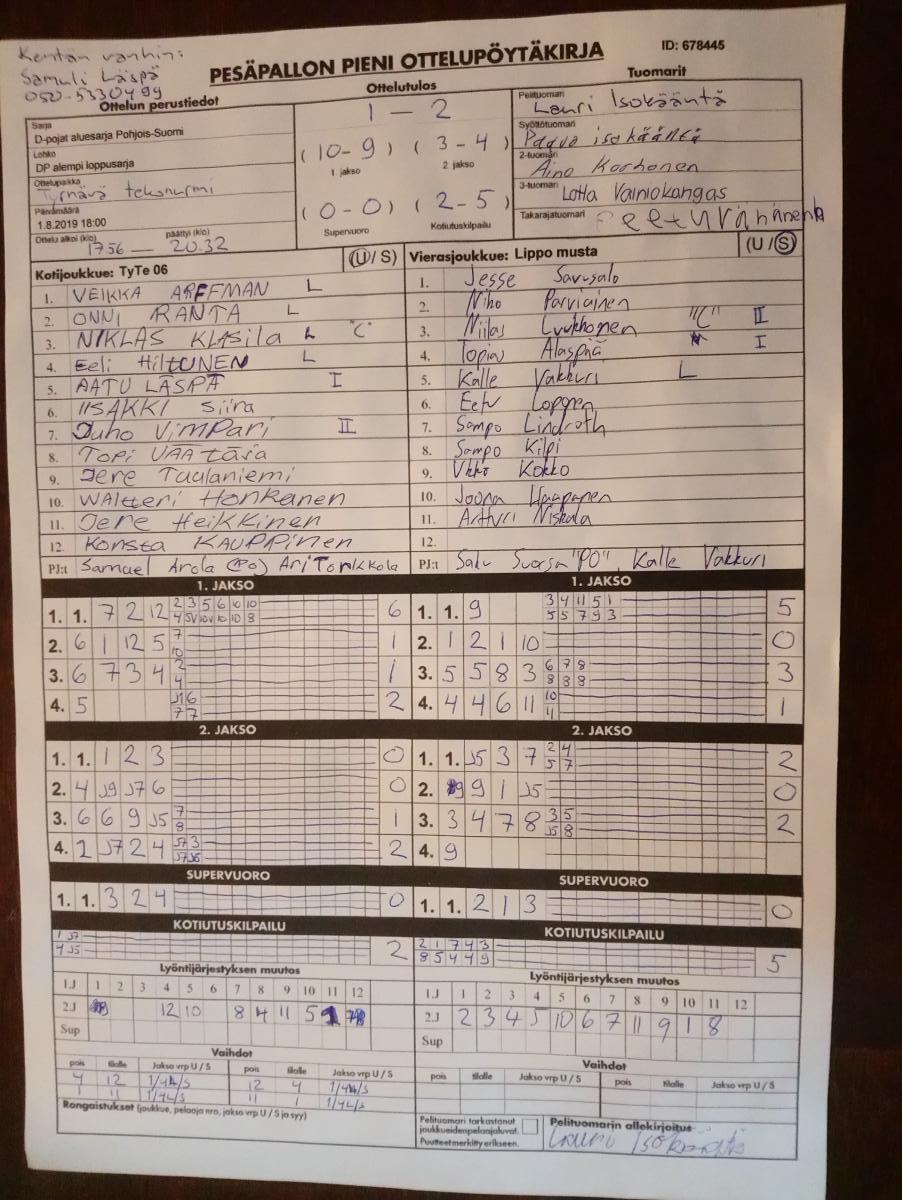 Kentän vanhin:
Samuli Läspä
050-5330499
PESÄPALLON PIENI OTTELUPÖYTÄKIRJA
ID: 678445
Ottelun perustiedot
Ottelutulos
Tuomarit
Sarja
D-pojat aluesarja Pohjois-Suomi
Lohko
DP alempi loppusarja
Ottelupaikka
Tyrnävä tekonurmi
Päivämäärä
1.8.2019 18:00
Ottelu alkoi (klo) päättyi (klo)
1756 — 20.32
1 — 2
(10-9) (3-4)
1. jakso 2. jakso
(0-0) (2-5)
Supervuoro Kotiutuskilpailu
Pelituomari
Lauri Isokääntä
Syöttötuomari
Paavo isokääntä
2-tuomari
Aino Korhonen
3-tuomari
Lotta Vainiokangas
Takarajatuomari
Kotijoukkue: TyTe 06 (U/S)
1. VEIKKA ARFFMAN L
2. ONNI RANTA L
3. NIKLAS KLASila L "C"
4. Eeli HILTUNEN L
5. AATU LÄSPÄ I
6. IISAKKI Siira
7. Juho VimPari II
8. TOPi VÄÄtäja
9. Jere Tuulaniemi
10. WALtteri Honkanen
11. Jere Heikkinen
12. Konsta KAUPPinen
PJ:t Samuel Arola (PO) Ari Tonkkola
Vierasjoukkue: Lippo musta (U/S)
1. Jesse Savusalo
2. Niko Parviainen
3. Niilas Luukkonen "C" II
4. Topias Alaspää I
5. Kalle Vakkuri L
6. Eetu Loppnen
7. Sampo Lindroth
8. Sampo Kilpi
9. Ukko Kokko
10. Joona Haapanen
11. Artturi Niskala
12.
PJ:t Saku Suorsa "PO", Kalle Vakkuri
1. JAKSO
1. 1. 7 2 12 2 3 5 6 10 10 6
4 5V 10V 10 10 8
2. 6 1 12 5 7 1
10
3. 6 7 3 4 2 1
4
4. 5 J1 6 2
7 7
1. JAKSO
1. 1. 9 3 4 11 5 1 5
5 5 7 9 3
2. 1 2 1 10 0
3. 5 5 8 3 6 7 8 3
8 8 8
4. 4 4 6 11 10 1
11
2. JAKSO
1. 1. 1 2 3 0
2. 4 J9 J7 6 0
3. 6 6 9 J5 7 1
8
4. 1 J7 2 4 J7 3 2
J7 J5
2. JAKSO
1. 1. J5 3 7 2 4 2
5 7
2. 9 1 J5 0
3. 3 4 7 8 3 5 2
J5 8
4. 9
SUPERVUORO
1. 1. 3 2 4 0
SUPERVUORO
1. 1. 2 1 3 0
KOTIUTUSKILPAILU
1 J7 2
4 J5
KOTIUTUSKILPAILU
2 1 7 4 3 5
8 5 4 4 9
Lyöntijärjestyksen muutos
1.J 1 2 3 4 5 6 7 8 9 10 11 12
2.J 12 10 8 4 11 5 1
Sup
Lyöntijärjestyksen muutos
1.J 1 2 3 4 5 6 7 8 9 10 11 12
2.J 2 3 4 5 10 6 7 11 9 1 8
Sup
Vaihdot
pois tilalle Jakso vrp U / S pois tilalle Jakso vrp U / S
4 12 1/4U/S 12 4 1/4U/S
1 11 1/4U/S 11 1 1/4U/S
Rangaistukset (joukkue, pelaaja nro, jakso vrp U / S ja syy)
Vaihdot
pois tilalle Jakso vrp U / S pois tilalle Jakso vrp U / S
Pelituomari tarkastanut
joukkueidenpelaajaluvat.
Puutteet merkitty erikseen.
Pelituomarin allekirjoitus
Lauri Isokääntä